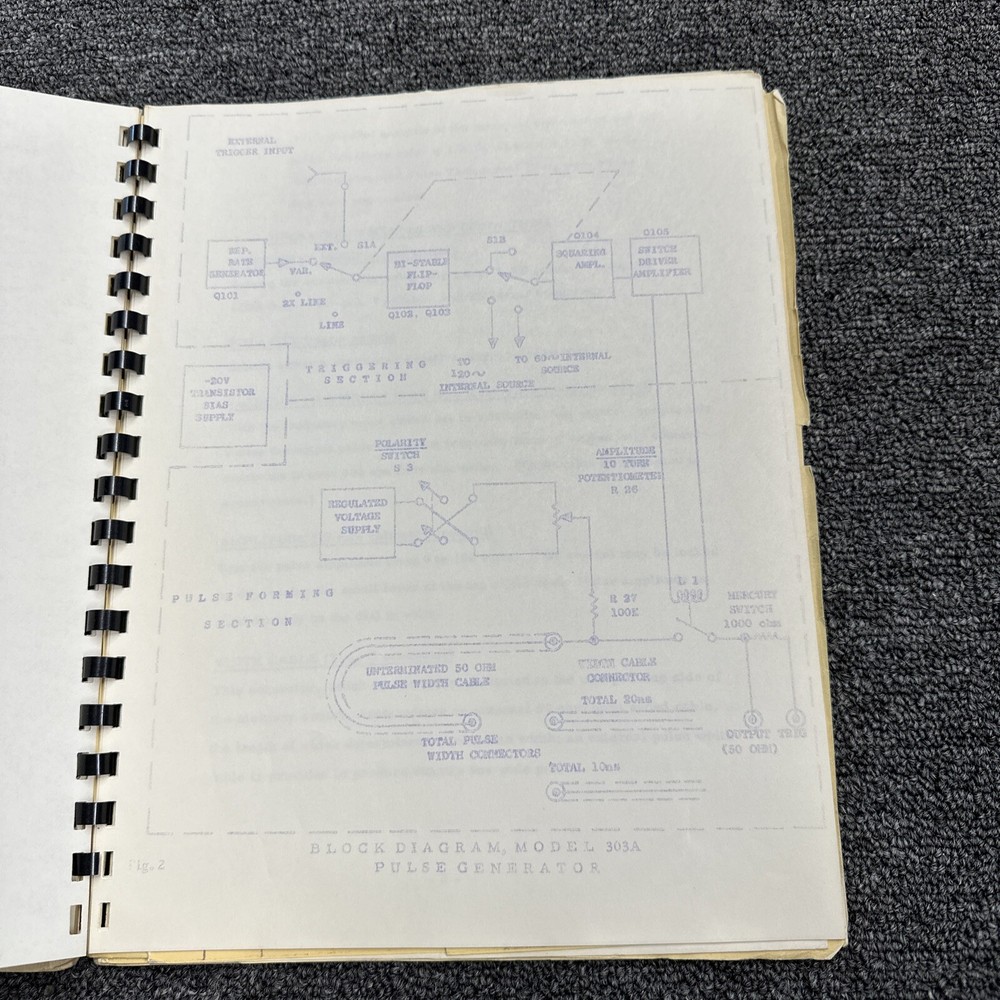 EXTERNAL
TRIGGER INPUT
EXT.
S1A
S1B
Q104
Q105
REP.
RATE
GENERATOR
VAR.
BI-STABLE
FLIP-
FLOP
SQUARING
AMPL.
SWITCH
DRIVER
AMPLIFIER
Q101
2X LINE
LINE
Q102, Q103
TRIGGERING
SECTION
TO
120~
INTERNAL SOURCE
TO 60~INTERNAL
SOURCE
-20V
TRANSISTOR
BIAS
SUPPLY
POLARITY
SWITCH
S 3
AMPLITUDE
10 TURN
POTENTIOMETER
R 26
REGULATED
VOLTAGE
SUPPLY
PULSE FORMING
SECTION
R 27
100K
L 1
MERCURY
SWITCH
1000 ohm
UNTERMINATED 50 OHM
PULSE WIDTH CABLE
WIDTH CABLE
CONNECTOR
TOTAL 20ns
TOTAL PULSE
WIDTH CONNECTORS
OUTPUT TRIG
(50 OHM)
TOTAL 10ns
BLOCK DIAGRAM, MODEL 303A
PULSE GENERATOR
Fig. 2